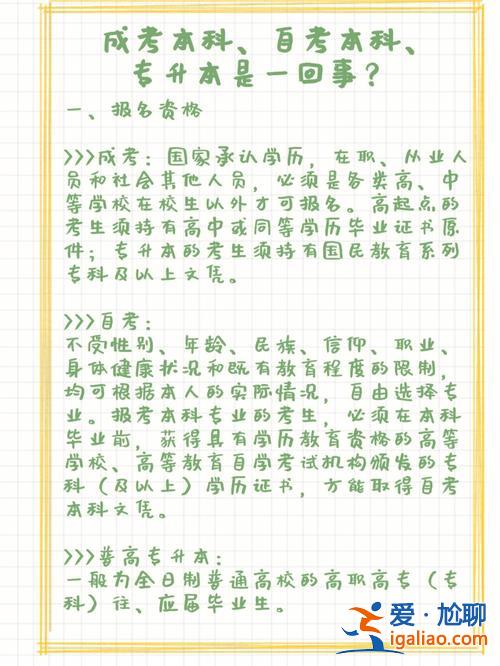 成考本科、自考本科、
专升本是一回事？
一、报名资格
>>>成考：国家承认学历，在职、从业人
员和社会其他人员，必须是各类高、中
等学校在校生以外才可报名。高起点的
考生须持有高中或同等学历毕业证书原
件；专升本的考生须持有国民教育系列
专科及以上文凭。
>>>自考：
不受性别、年龄、民族、信仰、职业、
身体健康状况和既有教育程度的限制，
均可根据本人的实际情况，自由选择专
业。报考本科专业的考生，必须在本科
毕业前，获得具有学历教育资格的高等
学校、高等教育自学考试机构颁发的专
科（及以上）学历证书，方能取得自考
本科文凭。
>>>普高专升本：
一般为全日制普通高校的高职高专（专
科）往、应届毕业生。
爱·尬聊
igaliao.com